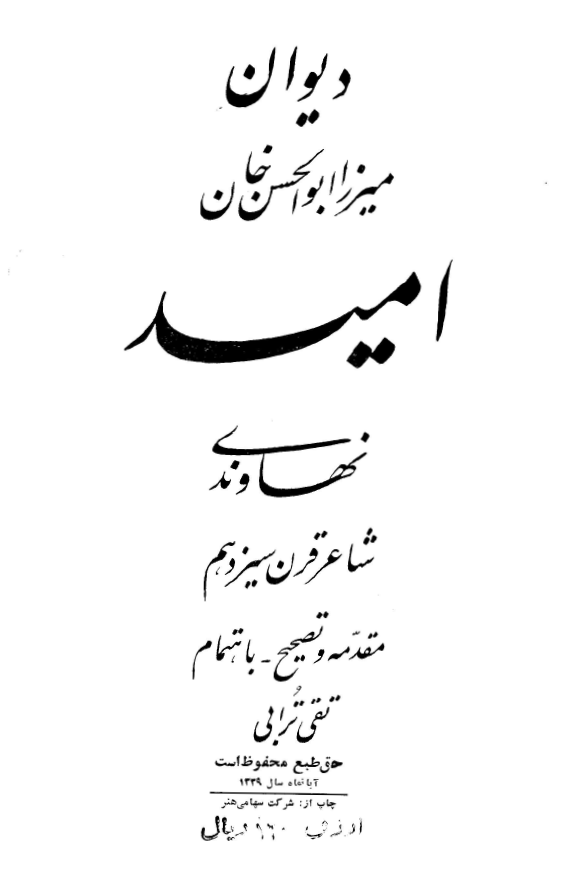 دیوان
میرزا ابوالحسن خان
امید
نهاوندی
شاعر قرن سیزدهم
مقدّمه و تصحیح - باهتمام
تقی تُرابی
حق طبع محفوظ است
آبانماه سال ۱۳۳۹
چاپ از: شرکت سهامی هنر
ارزش ۱۶۰ ریال